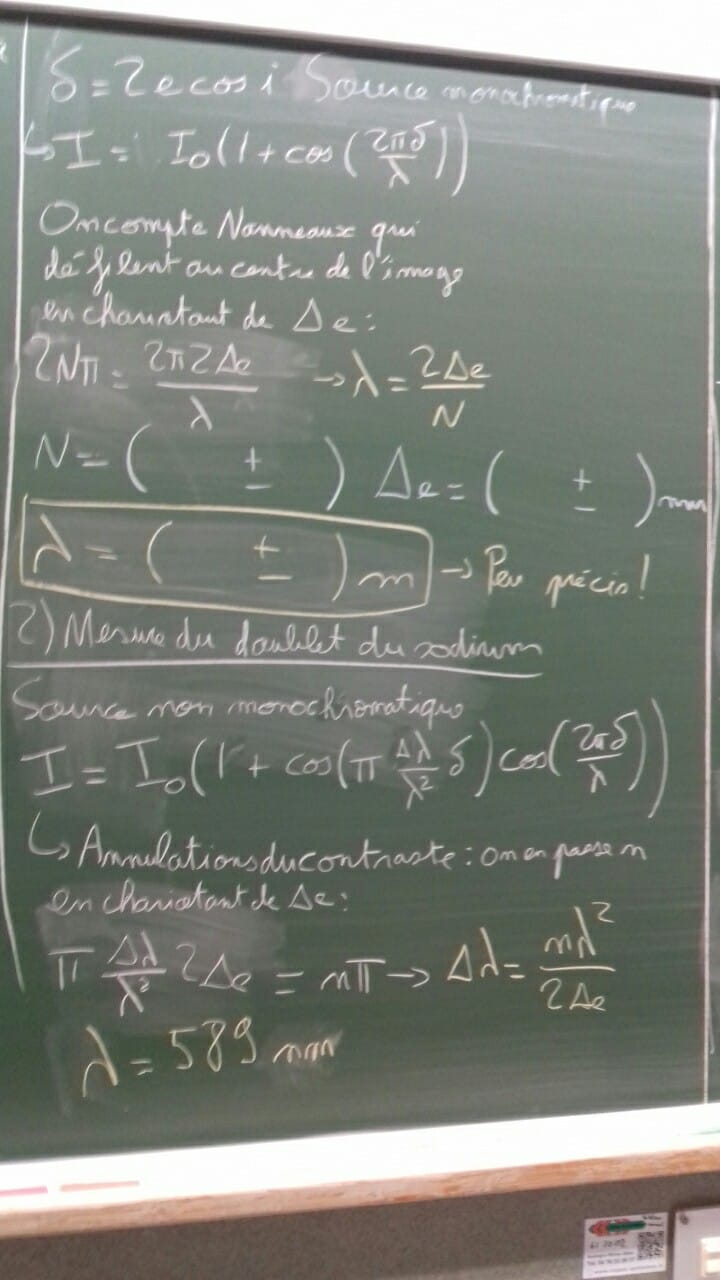 δ = 2 e cos i Source monochromatique
↳ I = I₀(1 + cos(2πδ/λ))
On compte N anneaux qui
défilent au centre de l'image
en chariotant de Δe :
2Nπ = 2π2Δe/λ → λ = 2Δe/N
N = ( ± ) Δe = ( ± ) mm
λ = ( ± ) m → Peu précis !
2) Mesure du doublet du sodium
Source non monochromatique
I = I₀(1 + cos(π Δλ/λ² δ) cos(2πδ/λ))
↳ Annulations du contraste : on en passe n
en chariotant de Δe :
π Δλ/λ² 2Δe = nπ → Δλ = nλ²/2Δe
λ = 589 nm